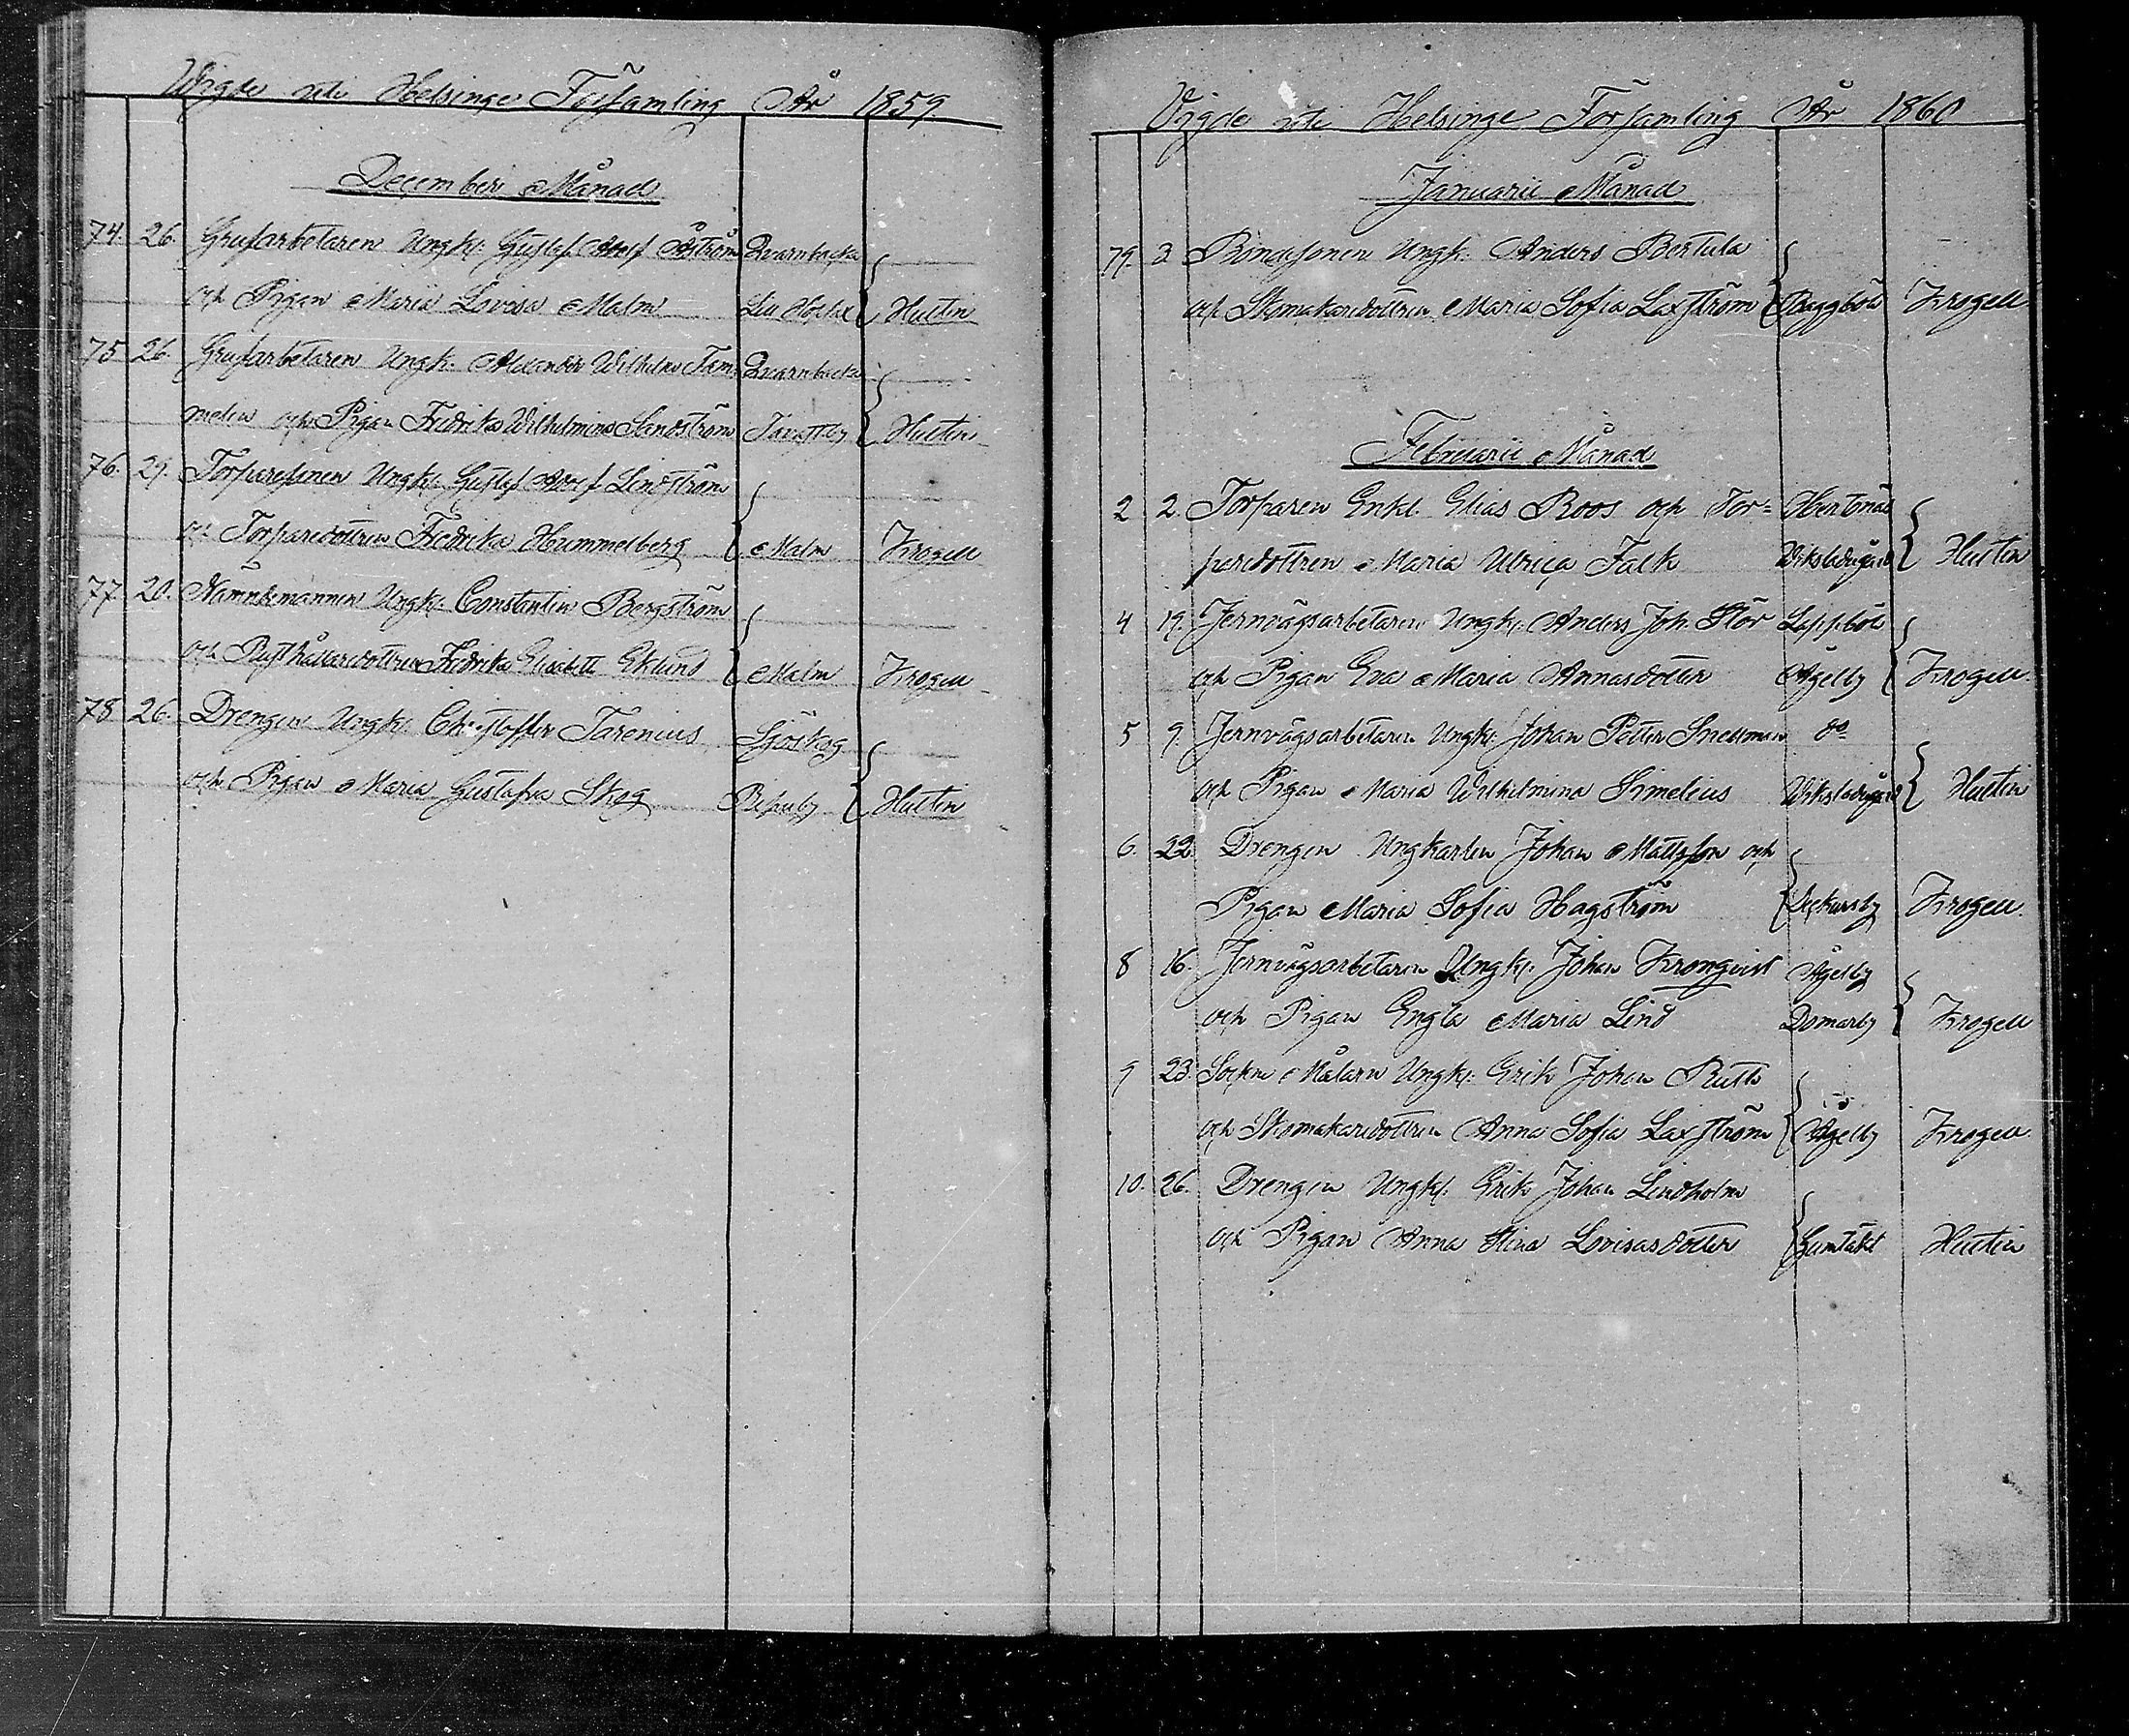 Vigde uti Helsinge Församling År 1859.
December Månad
74. 26. Grufarbetaren Ungk: Gustaf Adolf Åström Qvarnbacka
och Pigan Maria Lovisa Malm Hultin
75. 26. Grufarbetaren Ungk. Alexander Wilhelm Tam- Qvarnbacka
melin och Pigan Fredrika Wilhelmina Sandström Hultin
76. 29. Torparesonen Ungk: Gustaf Adolf Lindström
och Torparedottren Fredrika Hummelberg Malm Krogell
77. 20. Nämndemannen Ungk: Constantin Bergström
och Rusthållaredottren Fredrika Elisabeth Eklund Malm Krogell
78. 26. Drengen Ungk: Christoffer Tarenius Sjöskog
och Pigan Maria Gustafva Skog Hultin
Vigde uti Helsinge Församling År 1860
Januarii Månad
79. 3 Bondesonen Ungk. Anders Bertula
och Skomakaredottren Maria Sofia Laxström Baggböle Krogell
Februarii Månad
2 2. Torparen Enkl. Elias Roos och Tor= Hertonäs
paredottren Maria Ulrica Falk Viksladugård Hultin
4 19. Jernvägsarbetaren Ungk: Anders Joh. Flör Lappböle
och Pigan Eva Maria Annasdotter Ågelby Krogell
5 9. Jernvägsarbetaren Ungk: Johan Petter Snellman do
och Pigan Maria Wilhelmina Simelius Viksladugård Hultin
6. 22. Drengen Ungkarlen Johan Mattsson och
Pigan Maria Sofia Hagström Dickursby Krogell
8 16. Jernvägsarbetaren Ungk: Johan Kronqvist Ågelby
och Pigan Engla Maria Lind Domarby Krogell
9 23. Sockne Målaren Ungk: Erik Johan Ruth
och Skomakaredottren Anna Sofia Laxström Ågelby Krogell
10. 26. Drengen Ungk: Erik Johan Lindholm
och Pigan Anna Stina Lovisasdotter Gumtäkt Hultin